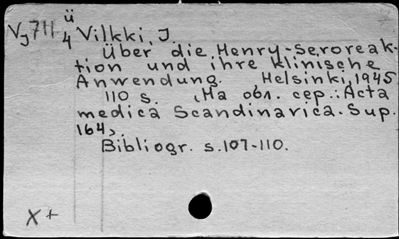 Vj711 ü/4 Vilkki, J.
Über die Henry-Seroreak-
tion und ihre klinische
Anwendung. Helsinki, 1945
110 s. (На обл. сер.: Acta
medica Scandinavica. Sup.
164).
Bibliogr. s. 107-110.
X+